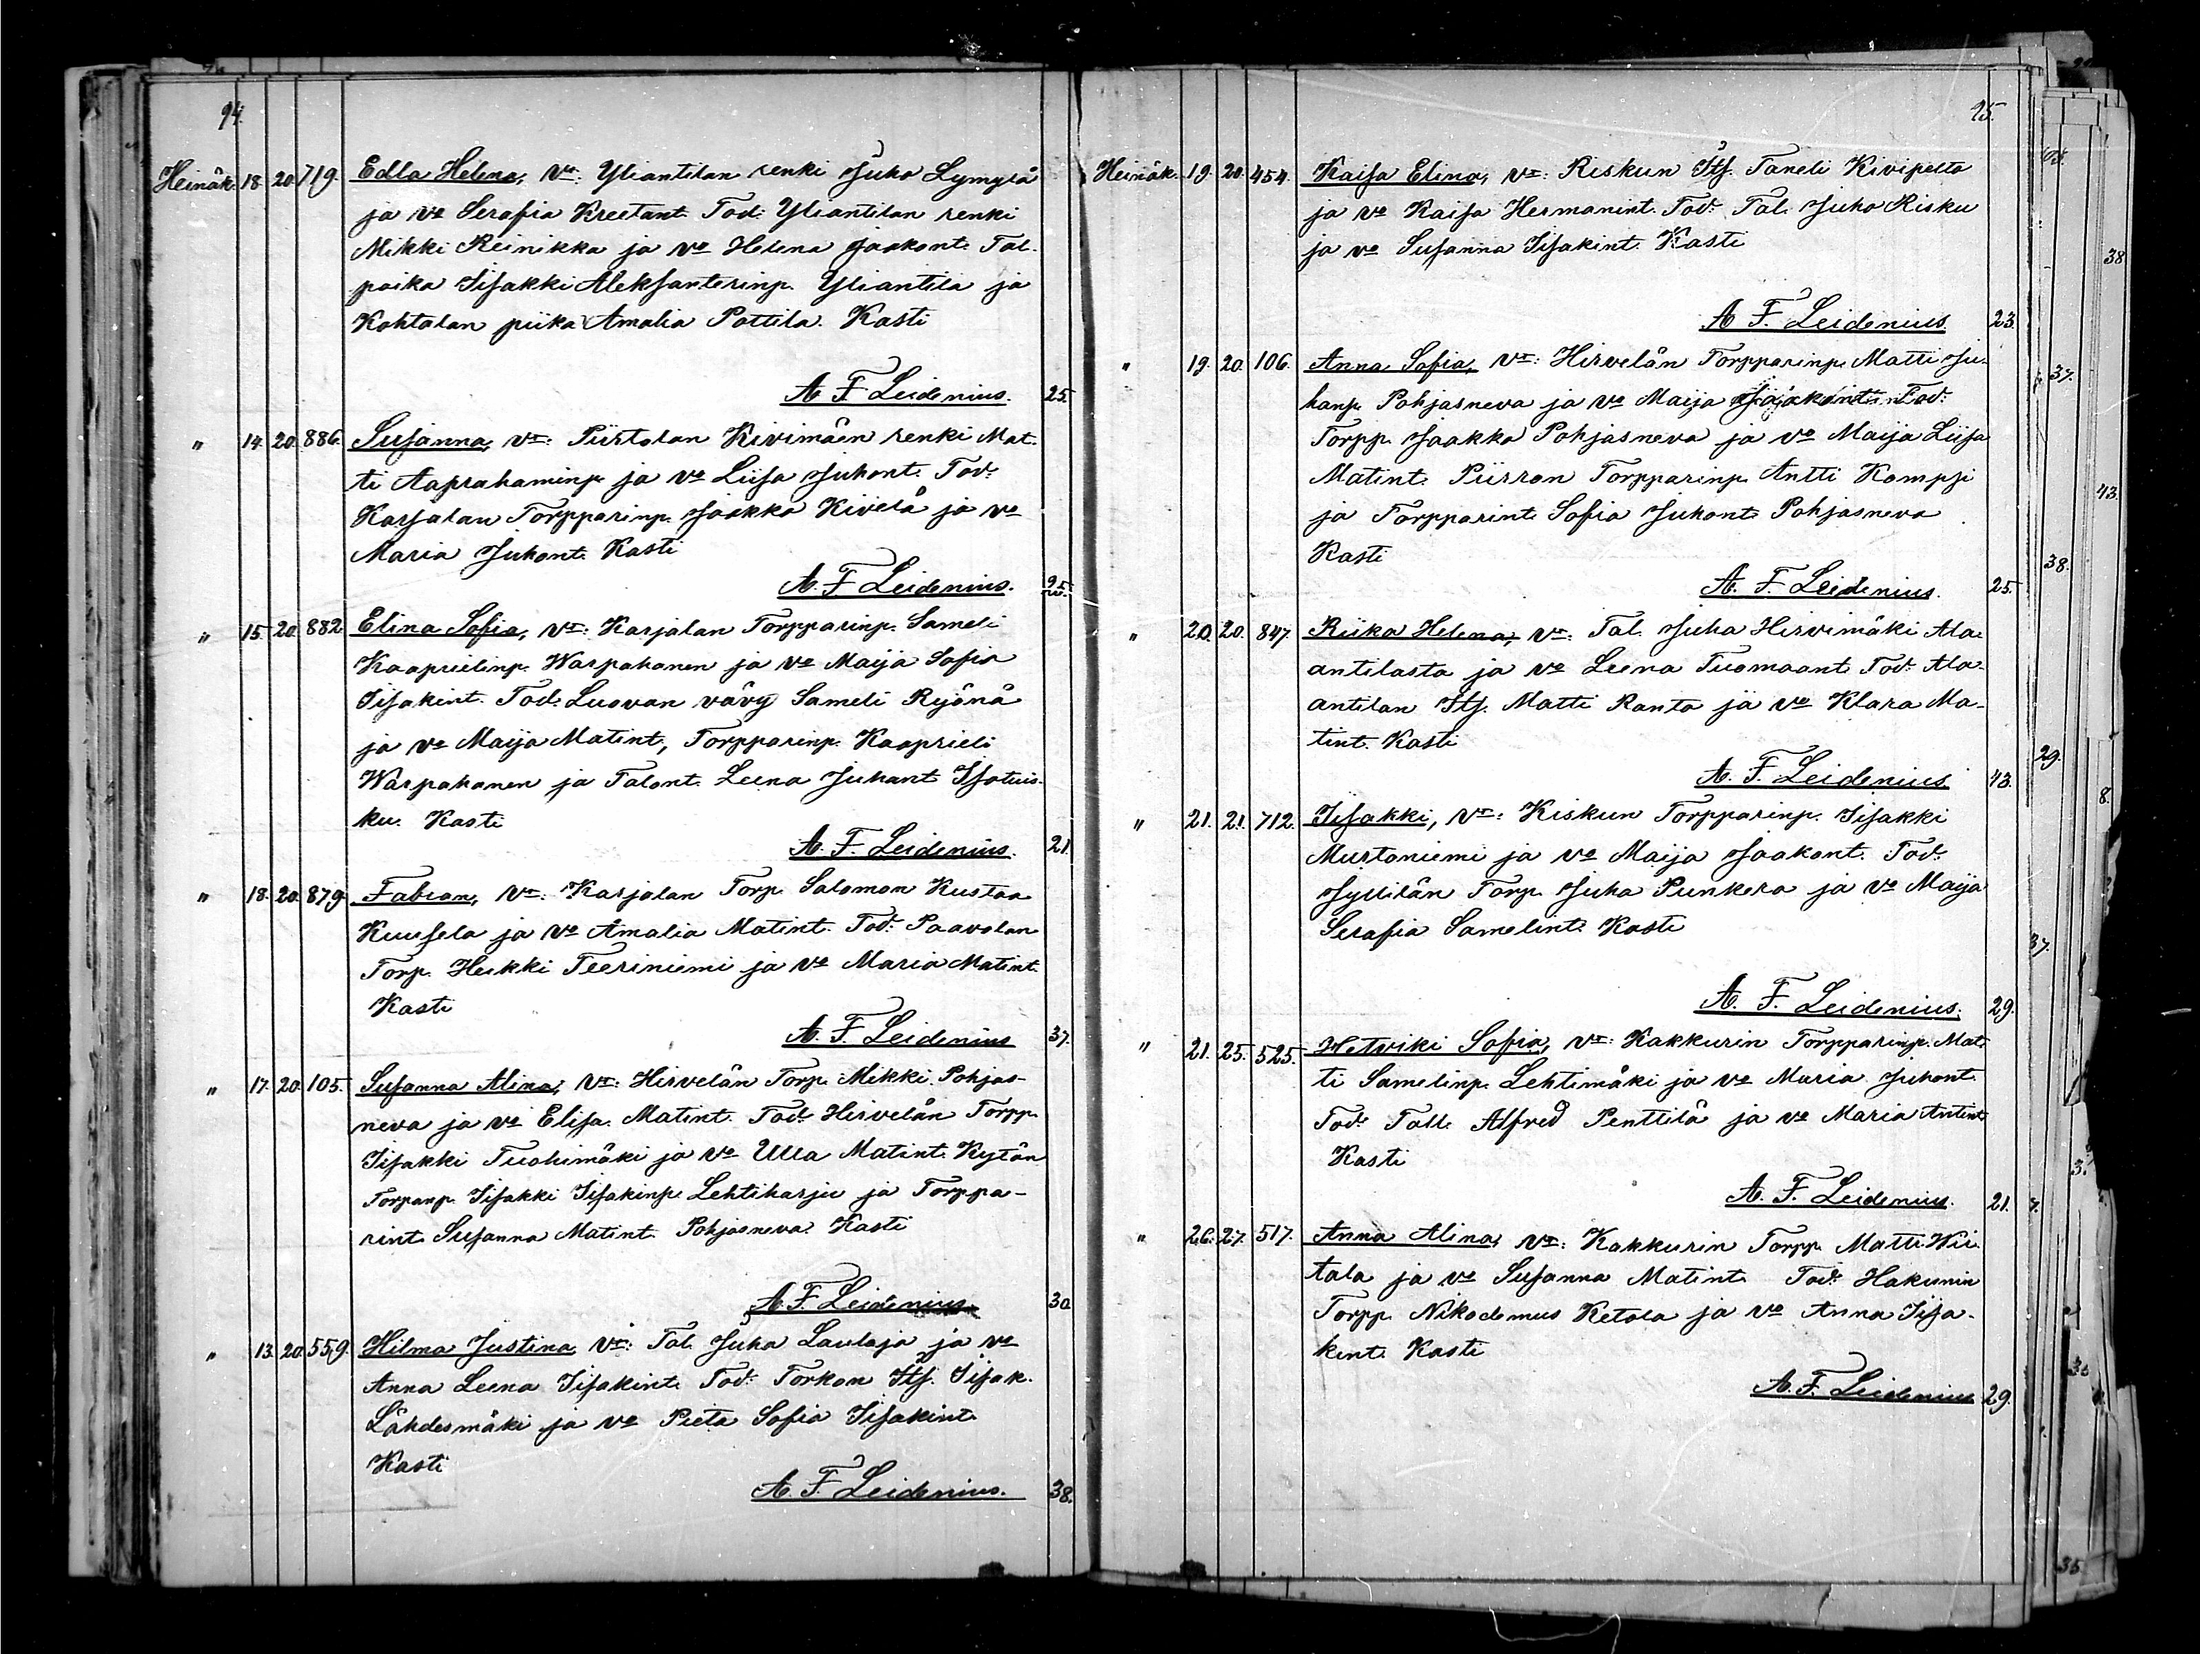 94.
Heinäk. 18. 20. 719. Edla Helena, v:t: Yliantilan renki Juho Lymylä
ja v:o Serafia Kreetant. Tod: Yliantilan renki
Mikki Reinikka ja v:o Helena Jaakont. Tal.
poika Iisakki Aleksanterinp. Yliantila ja
Kohtalan piika Amalia Pottila. Kasti
A. F. Leidenius. 25
" 14. 20. 886. Susanna, v:t: Piirtolan Kivimäen renki Mat-
ti Aaprahaminp. ja v:o Liisa Juhont. Tod:
Karjalan Torpparinp. Jaakko Kivelä ja v:o
Maria Juhont. Kasti
A. F. Leidenius.
" 15. 20. 882. Elina Sofia, v:t: Karjalan Torpparinp. Sameli
Kaaprielinp. Warpahanen ja v:o Maija Sofia
Iisakint. Tod: Luovan vävy Sameli Ryönä
ja v:o Maija Matint., Torpparinp. Kaaprieli
Warpahanen ja Talont. Leena Juhant. Isotuis-
ku. Kasti
A. F. Leidenius. 21.
" 18. 20. 879. Fabian, v:t: Karjalan Torp. Salomon Kustaa
Kuusela ja v:o Amalia Matint. Tod: Paavolan
Torp. Heikki Teeriniemi ja v:o Maria Matint.
Kasti
A. F. Leidenius 37.
" 17. 20. 105. Susanna Alina, v:t: Hirvelän Torp. Mikki Pohjas-
neva ja v:o Elisa Matint. Tod: Hirvelän Torpp.
Iisakki Tuohimäki ja v:o Ulla Matint. Kytön
Torpanp. Iisakki Iisakinp. Lehtiharju ja Torppa-
rint. Susanna Matint. Pohjasneva. Kasti
A. F. Leidenius 30.
" 13. 20. 559. Hilma Justina v:t: Tal. Juha Laulaja ja v:o
Anna Leena Iisakint. Tod: Torkon Its. Iisak.
Lähdesmäki ja v:o Pieta Sofia Iisakint.
Kasti
A. F. Leidenius. 38.
95.
Heinäk. 19. 20. 454. Kaisa Elina, v:t: Riskun Its. Taneli Kivipelto
ja v:o Kaisa Hermanint. Tod: Tal. Juho Risku
ja v:o Susanna Iisakint. Kasti
A. F. Leidenius. 23.
" 19. 20. 106. Anna Sofia, v:t: Hirvelän Torpparinp. Matti Ju-
hanp. Pohjasneva ja v:o Maija Jaakont. Tod:
Torpp. Jaakko Pohjasneva ja v:o Maija Liisa
Matint. Piirron Torpparinp. Antti Komppi
ja Torpparint. Sofia Juhont. Pohjasneva
Kasti
A. F. Leidenius. 25.
" 20. 20. 847. Riika Helena, v:t: Tal. Juha Hirvimäki Ala-
antilasta ja v:o Leena Tuomaant. Tod: Ala-
antilan Its. Matti Ranta ja v:o Klara Ma-
tint. Kasti
A. F. Leidenius 43.
" 21. 21. 712. Iisakki, v:t: Kiskun Torpparinp. Iisakki
Murtoniemi ja v:o Maija Jaakont. Tod:
Jyllilän Torp. Juha Punkera ja v:o Maija
Serafia Samelint. Kasti
A. F. Leidenius. 29.
" 21. 25. 525. Hetviki Sofia, v:t: Kakkurin Torpparinp. Mat-
ti Samelinp. Lehtimäki ja v:o Maria Juhont.
Tod: Tall. Alfred Penttilä ja v:o Maria Antint.
Kasti
A. F. Leidenius. 21.
" 26. 27. 517. Anna Alina, v:t: Kakkurin Torpp. Matti Wii-
tala ja v:o Susanna Matint. Tod: Hakunin
Torpp. Nikodemus Ketola ja v:o Anna Iisa-
kint. Kasti
A. F. Leidenius 29.